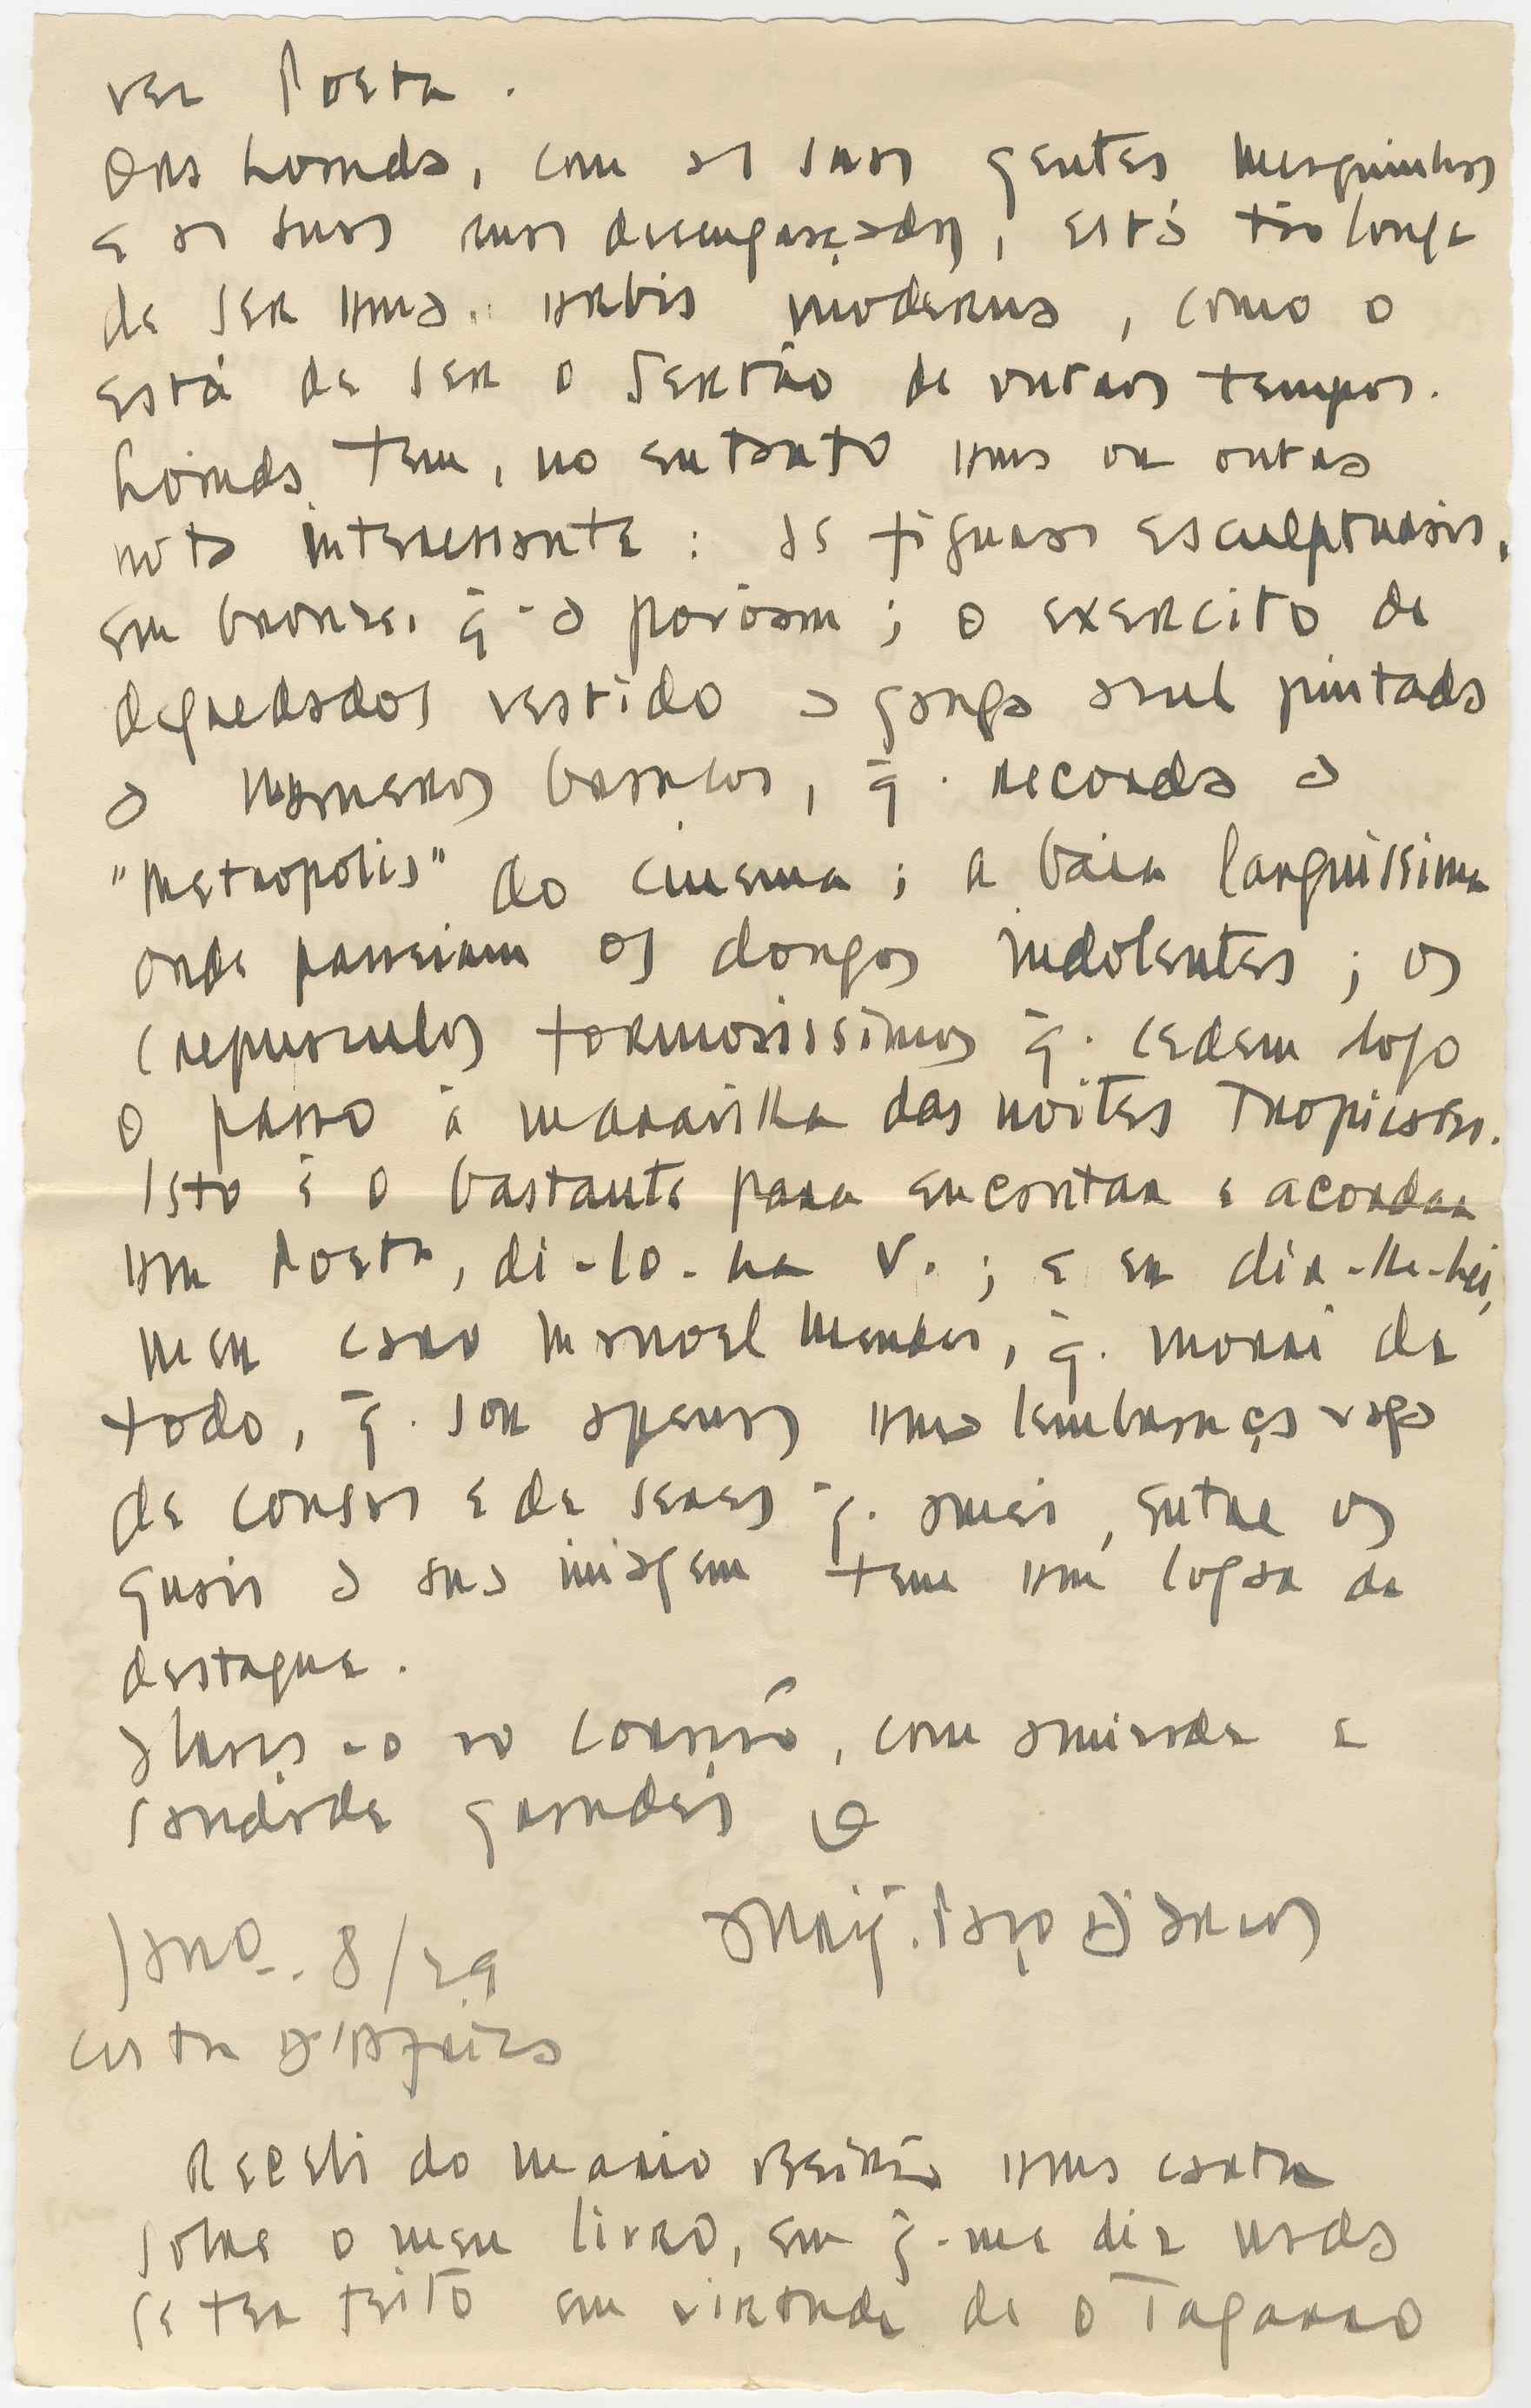 ver Poeta.
Ora Loanda, com as suas gentes mesquinhas
e as suas ruas desengraçadas, está tão longe
de ser uma urbis moderna, como o
está de ser o Sertão de outros tempos.
Loanda tem, no entanto uma ou outra
nota interessante: as figuras esculpturais,
em bronze, q̄. a povôam; o exercito de
degredados vestido a ganga azul pintada
a numeros brancos, q̄. recorda a
"Metropolis" do cinema; a baía larguissima
onde passeiam os dongos indolentes; os
crepusculos formosissimos q̄. cedem logo
o passo á maravilha das noites tropicaes.
Isto é o bastante para encontrar e acordar
um Poeta, di-lo-ha V.; e eu dir-lhe-hei,
meu caro Manoel Mendes, q̄. morri de
todo, q̄. sou apenas uma lembrança vaga
de cousas e de seres q̄. amei, entre os
quais a sua imagem tem um logar de
destaque.
Abraça-o ao coração, com amisade e
saudade grandes o
Jan.º. 8/29
Costa d'Africa
Recebi do Mario Beirão uma carta
sobre o meu livro, em q̄. me diz nada
se ter feito em virtude de o Tagarro